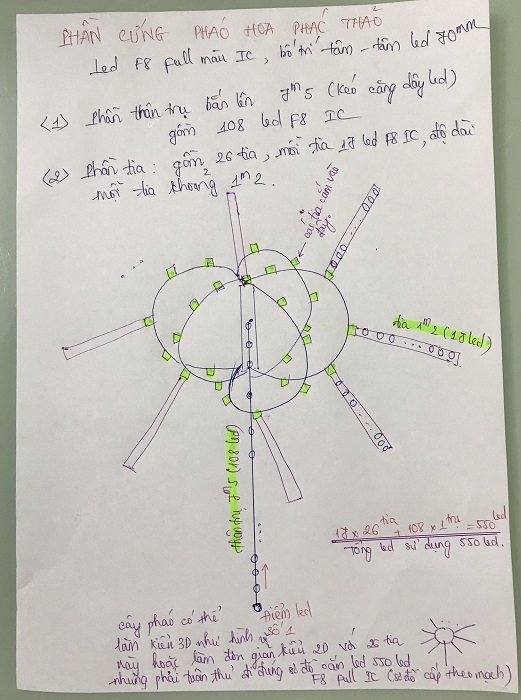 PHẦN CỨNG PHÁO HOA PHÁC THẢO
Led F8 Full màu IC, bố trí tâm - tâm led 70mm
<1> Phần thân trụ bắn lên 7m5 (kéo căng dây led)
gồm 108 led F8 IC
<2> Phần tia: gồm 26 tia, mỗi tia 17 led F8 IC, độ dài
mỗi tia khoảng 1m2.
các tia cắm vào
đây.
tia 1m2 (17 led)
thân trụ 7m5 (108 led)
17 x 26 tia + 108 x 1 trụ = 550 led
Tổng led sử dụng 550 led.
Điểm led
số 1
cây pháo có thể
làm kiểu 3D như hình vẽ
này hoặc làm đơn giản kiểu 2D với 26 tia
nhưng phải tuân thủ sử dụng số đồ cần led 550 led
F8 Full IC (sơ đồ cấp theo mạch)